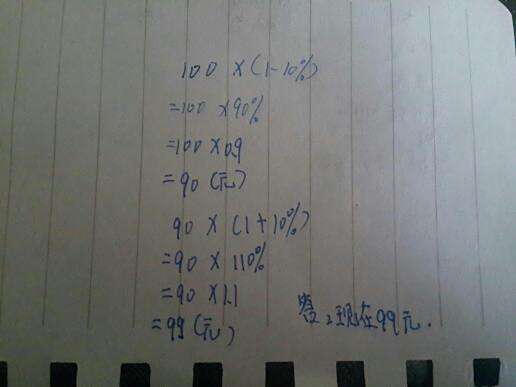 100×(1-10%)
=100×90%
=100×0.9
=90(元)
90×(1+10%)
=90×110%
=90×1.1
=99(元)
答:现在99元.